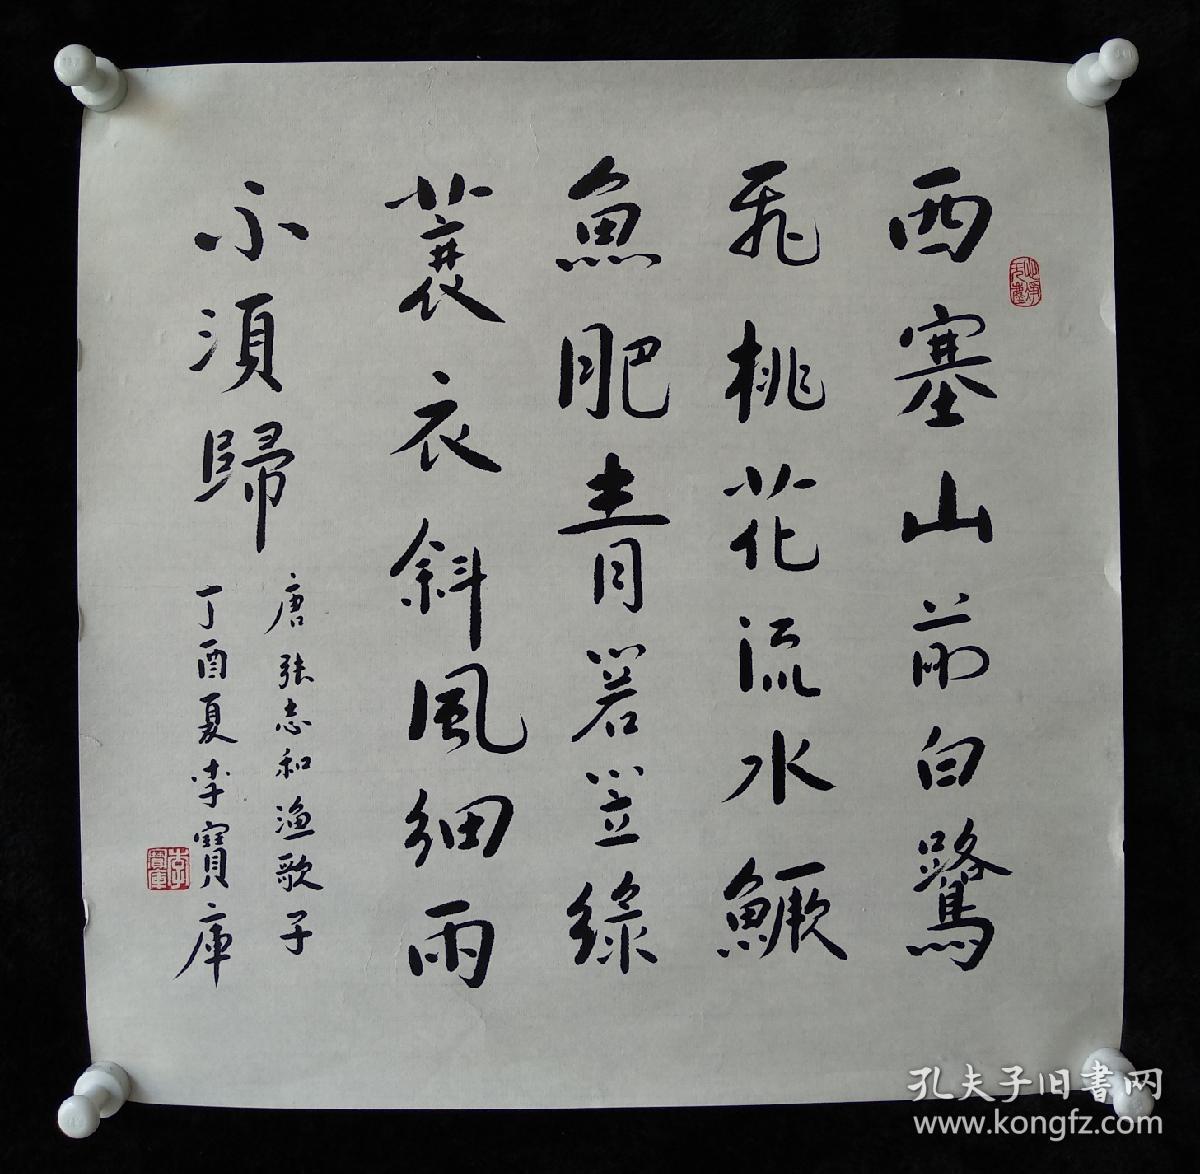 西塞山前白鷺
飛桃花流水鱖
魚肥青箬笠綠
蓑衣斜風細雨
不須歸
唐張志和漁歌子
丁酉夏李寶庫
李寶庫
孔夫子旧書网
www.kongfz.com